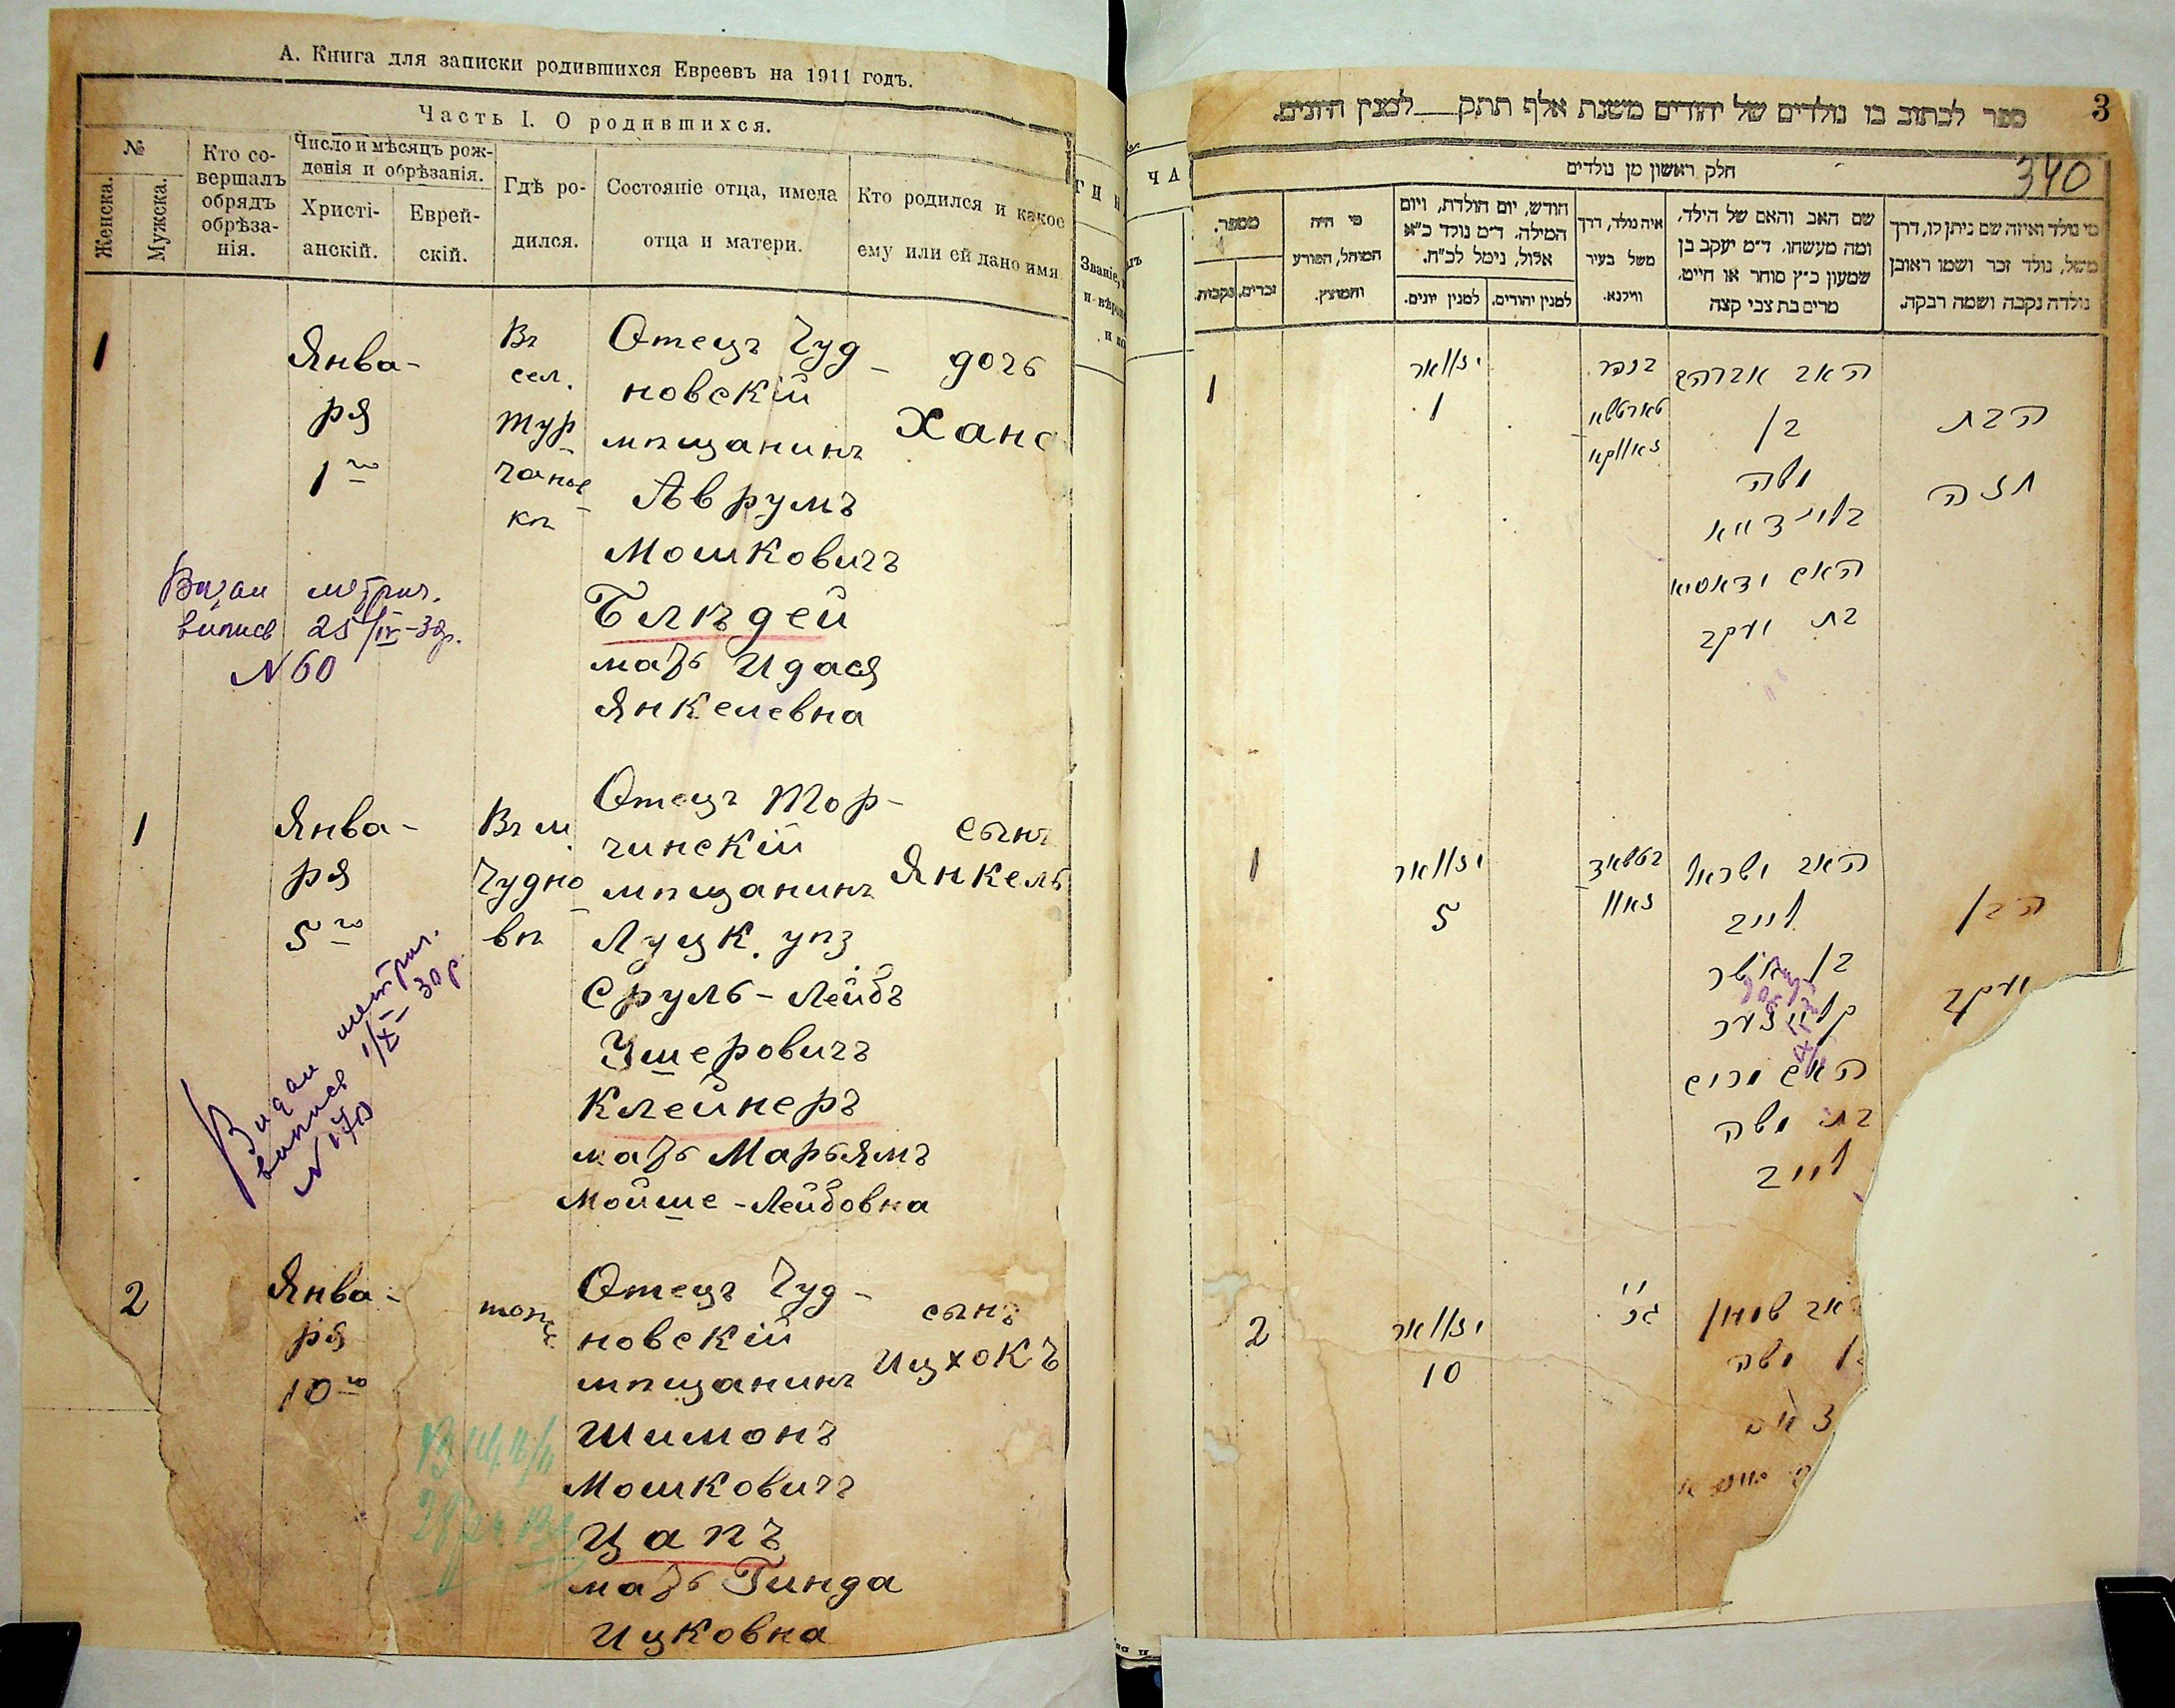 А. Книга для записки родившихся Евреевъ на 1911 годъ.
Часть I. О родившихся.
№
Женска.
Мужска.
Кто со-
вершалъ
обрядъ
обрѣза-
нія.
Число и мѣсяцъ рож-
денія и обрѣзанія.
Христі-
анскій.
Еврей-
скій.
Гдѣ ро-
дился.
Состояніе отца, имена
отца и матери.
Кто родился и какое
ему или ей дано имя
1
Янва-
ря
1го
Въ
сел.
Тур
чанов-
кѣ
Отецъ Чуд-
новскій
мѣщанинъ
Аврумъ
Мошковичъ
мать Идася
Янкелевна
дочь
Хана
метрич.
25/IV-30р.
N 60
1
Янва-
ря
5го
Въ м.
Чудно-
вѣ
Отецъ Тор-
чинскій
мѣщанинъ
Луцк. уѣз
Сруль-Лейбъ
Ушеровичъ
Клейнеръ
мать Марьямъ
Мойше-Лейбовна
сынъ
Янкель
метрич.
2
Янва-
ря
10го
тоже
Отецъ Чуд-
новскій
мѣщанинъ
Шимонъ
Мошковичъ
Цапъ
мать Гинда
Ицковна
сынъ
Ицхокъ
ספר לכתוב בו נולדים של יהודים משנת אלף תתק — למנין היונים.
3
340
חלק ראשון מן נולדים
מספר.
נקבות.
זכרים.
מי היה
המוהל, הפורע
והמוצץ.
חודש, יום הולדת, ויום
המילה. ד״מ נולד כ״א
אלול, נימל לכ״ח.
למנין יונים.
למנין יהודים.
איה נולד, דרך
משל בעיר
ווילנא.
שם האב והאם של הילד,
ומה מעשהו. ד״מ יעקב בן
שמעון כ״ץ סוחר או חייט,
מרים בת צבי קצה
מי נולד ואיזה שם ניתן לו, דרך
משל, נולד זכר ושמו ראובן
נולדה נקבה ושמה רבקה.
1
יאנואר
1
בכפר
האב אברהם
בן
משה
האם
בת יעקב
הבת
חנה
1
יאנואר
5
האב ישראל
לייב
בן אשר
קליינער
האם מרים
בת משה
לייב
הבן
יעקב
2
יאנואר
10
שמעון
משה